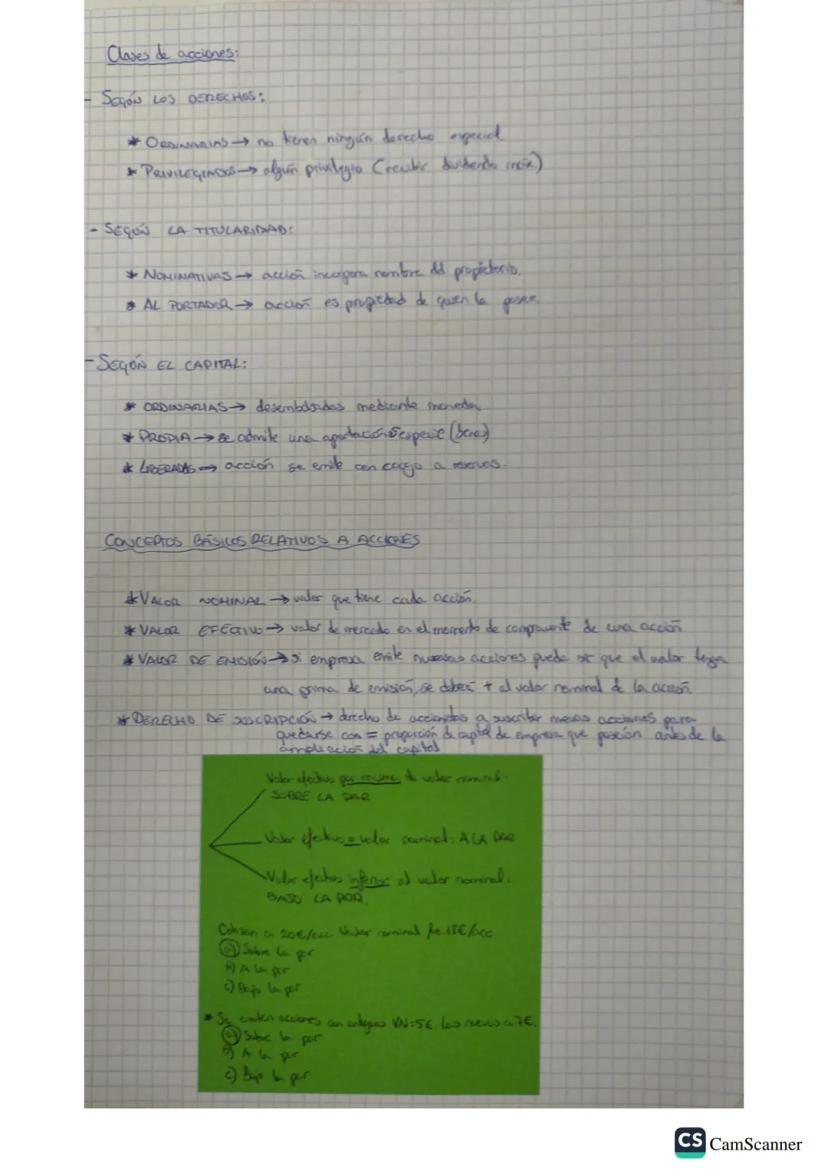 Clases de acciones:
- SEGÚN LOS DERECHOS:
* ORDINARIAS → no tienen ningún derecho especial.
* PRIVILEGIADAS → algún privilegio (recibir dividendo
- SEGÚN LA TITULARIDAD:
* NOMINATIVAS → acción incorpora nombre del propietario.
* AL PORTADOR → acción es propiedad de quien la posee.
- SEGÚN EL CAPITAL:
* ORDINARIAS → desembolsadas mediante moneda
* PROPIA → se admite una aportación
* LIBERADAS → acción se emite con cargo a reservas.
CONCEPTOS BÁSICOS RELATIVOS A ACCIONES
* VALOR NOMINAL → valor que tiene cada acción.
* VALOR EFECTIVO → valor de mercado en el momento de de una acción
* VALOR DE EMISIÓN → si empresa emite nuevas acciones puede ser que el valor tenga
una prima de emisión, se deberá + al valor nominal de la acción
* DERECHO DE SUSCRIPCIÓN → derecho de accionistas a suscribir nuevas acciones para
quedarse con = proporción de capital de empresa que poseían antes de la
ampliación del capital
Valor efectivo por encima de valor nominal.
SOBRE LA PAR
Valor efectivo = valor nominal: A LA PAR
Valor efectivo inferior al valor nominal.
BAJO LA PAR.
Cotizan a 20€/acc. Valor nominal fue 15€/acc
a) Sobre la par
b) A la par
c) Bajo la par
* Se emiten acciones con antiguas VN=5€. Las nuevas a 7€.
a) Sobre la par
b) A la par
c) Bajo la par
CS CamScanner